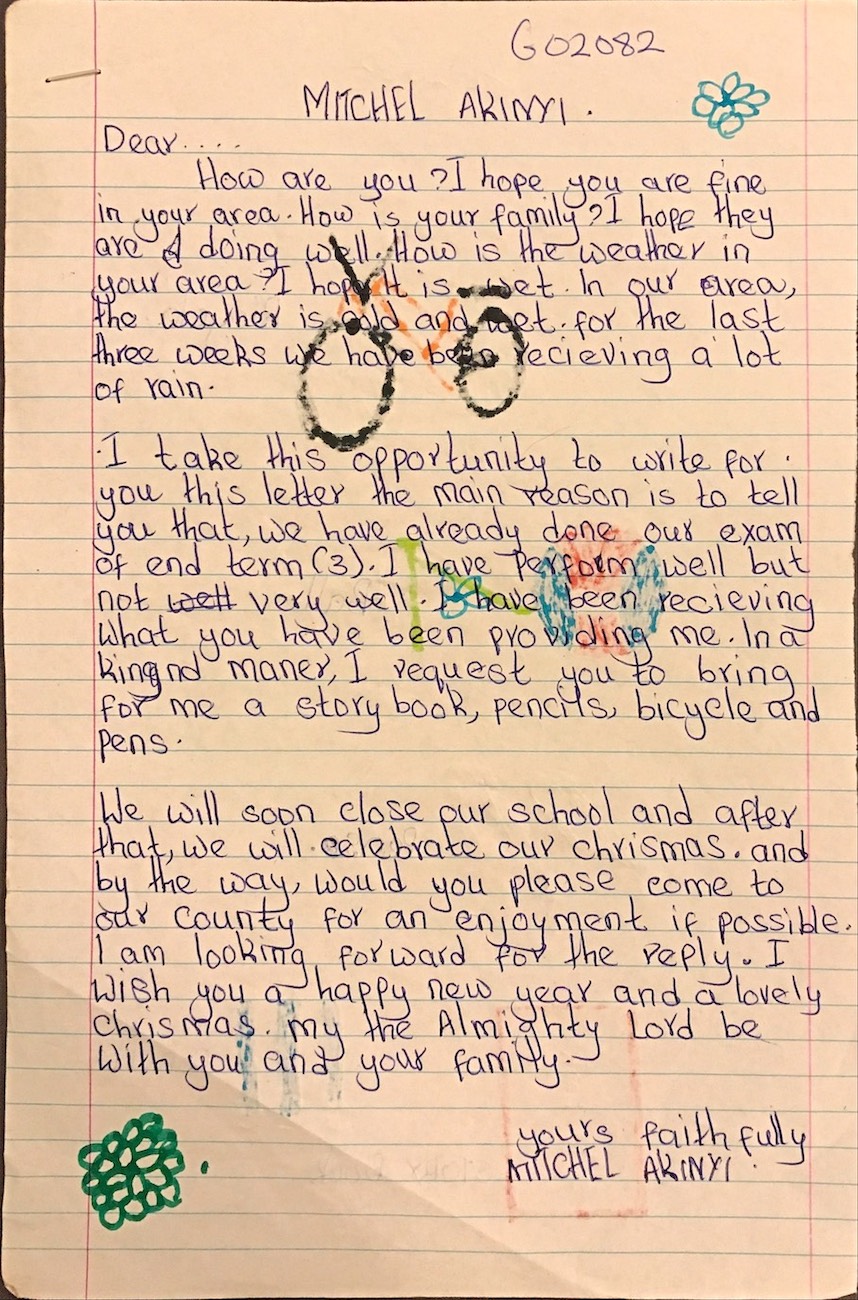 G02082
MITCHEL AKINYI.
Dear....
How are you? I hope you are fine
in your area. How is your family? I hope they
are doing well. How is the weather in
your area? I hope it is wet. In our area,
the weather is cold and wet. for the last
three weeks we have been recieving a lot
of rain.
I take this opportunity to write for.
you this letter the main reason is to tell
you that, we have already done our exam
of end term (3). I have perform well but
not well very well. I have been recieving
what you have been providing me. In a
kingnd maner, I request you to bring
for me a story book, pencils, bicycle and
pens.
We will soon close our school and after
that, we will celebrate our chrismas. and
by the way, would you please come to
our county for an enjoyment if possible.
I am looking forward for the reply. I
wish you a happy new year and a lovely
chrismas. my the Almighty Lord be
with you and your family.
yours faithfully
MITCHEL AKINYI.